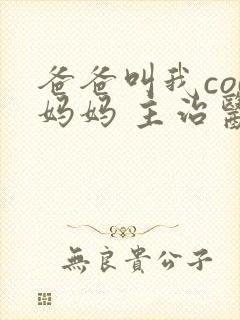 爸爸叫我co
妈妈 主治醫
無良貴公子